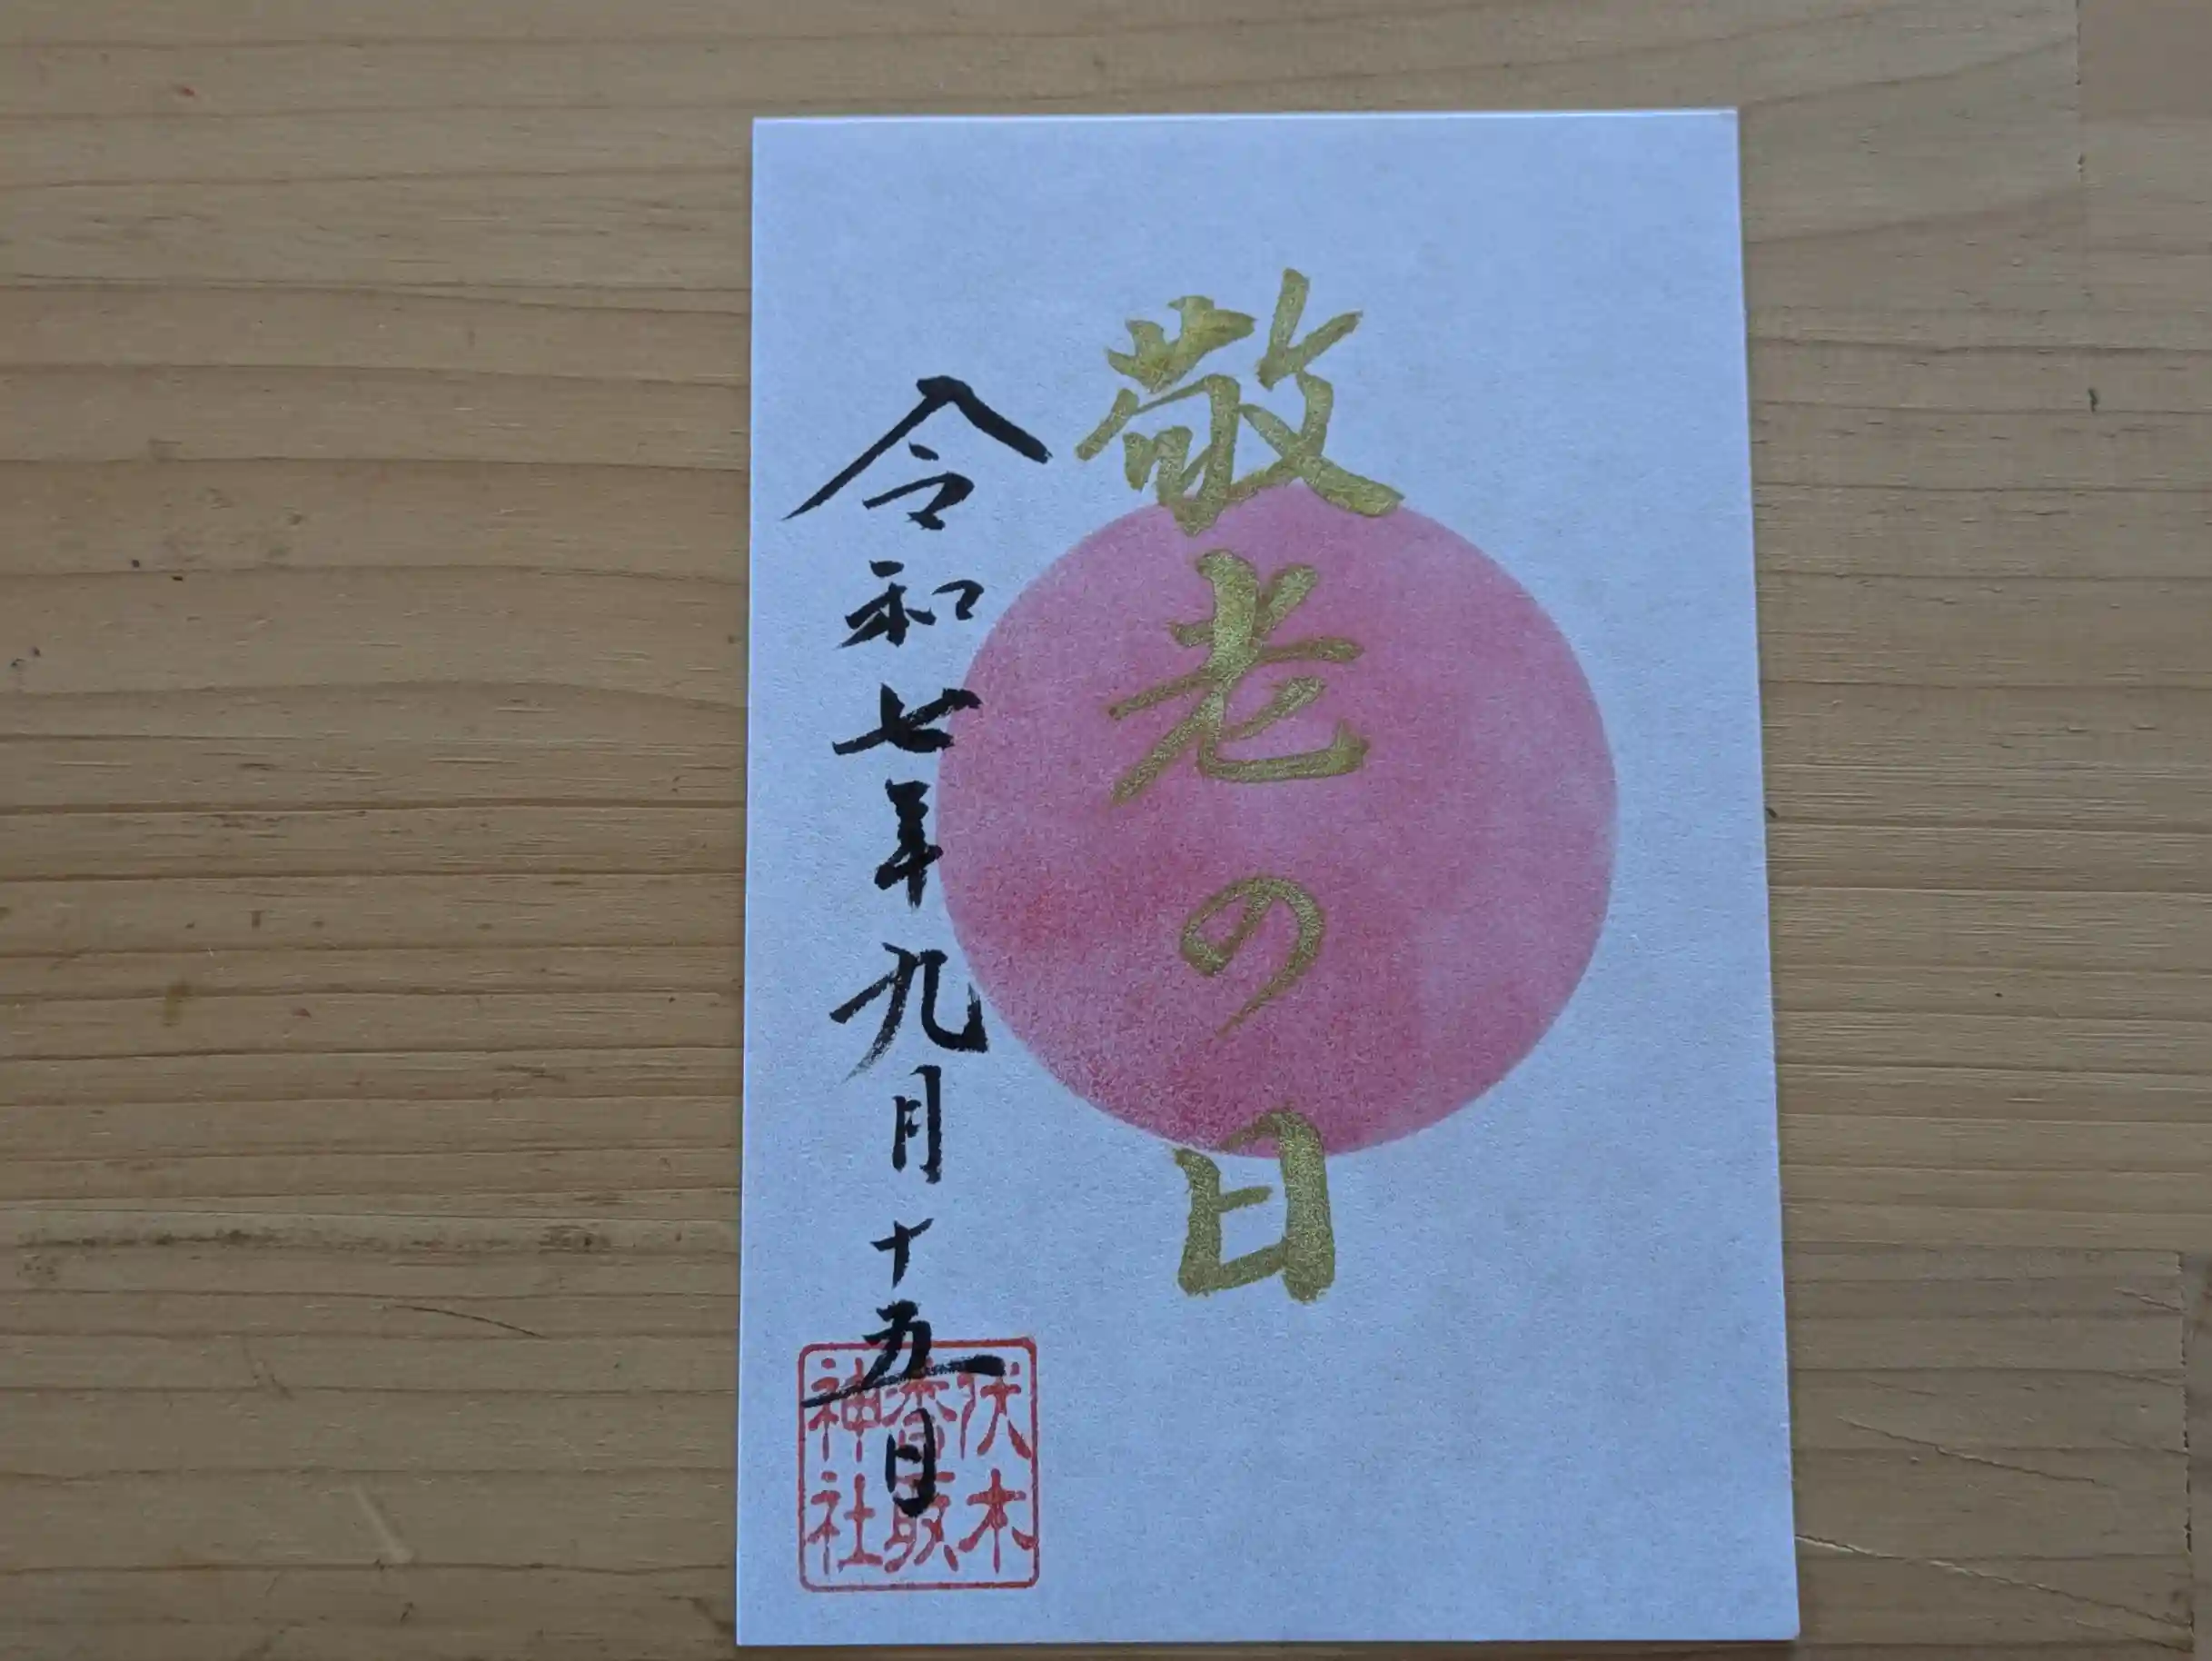 敬老の日
令和七年九月十五日
伏木
香取
神社